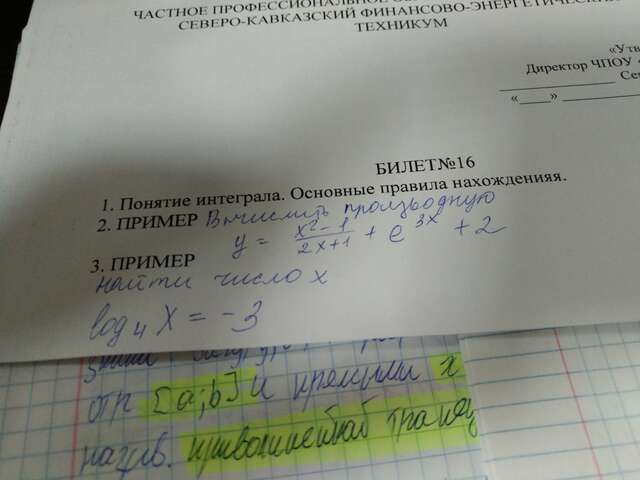 ЧАСТНОЕ ПРОФЕССИОНАЛЬНОЕ
СЕВЕРО-КАВКАЗСКИЙ ФИНАНСОВО-ЭНЕРГЕТИЧЕСКИЙ
ТЕХНИКУМ
«Утв
Директор ЧПОУ «
Се
«____»
БИЛЕТ№16
1. Понятие интеграла. Основные правила нахожденияя.
2. ПРИМЕР Вычислить производную
y = x²-1/2x+1 + e^3x + 2
3. ПРИМЕР
найти число x
log₄ x = -3
отр [a;b] и прямыми x
назыв. криволинейной трапец